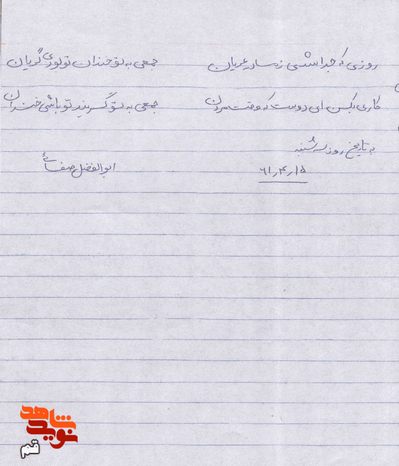 روزی که جدا شدی ز مادر عریان جمعی به تو خندان تو بودی گریان
کاری بکن ای دوست که وقت مردن جمعی به تو گریند تو باشی خندان
به تاریخ روز سه شنبه
۶۱٫۴٫۱۵ ابوالفضل صفائی
نوید شاهد
قم